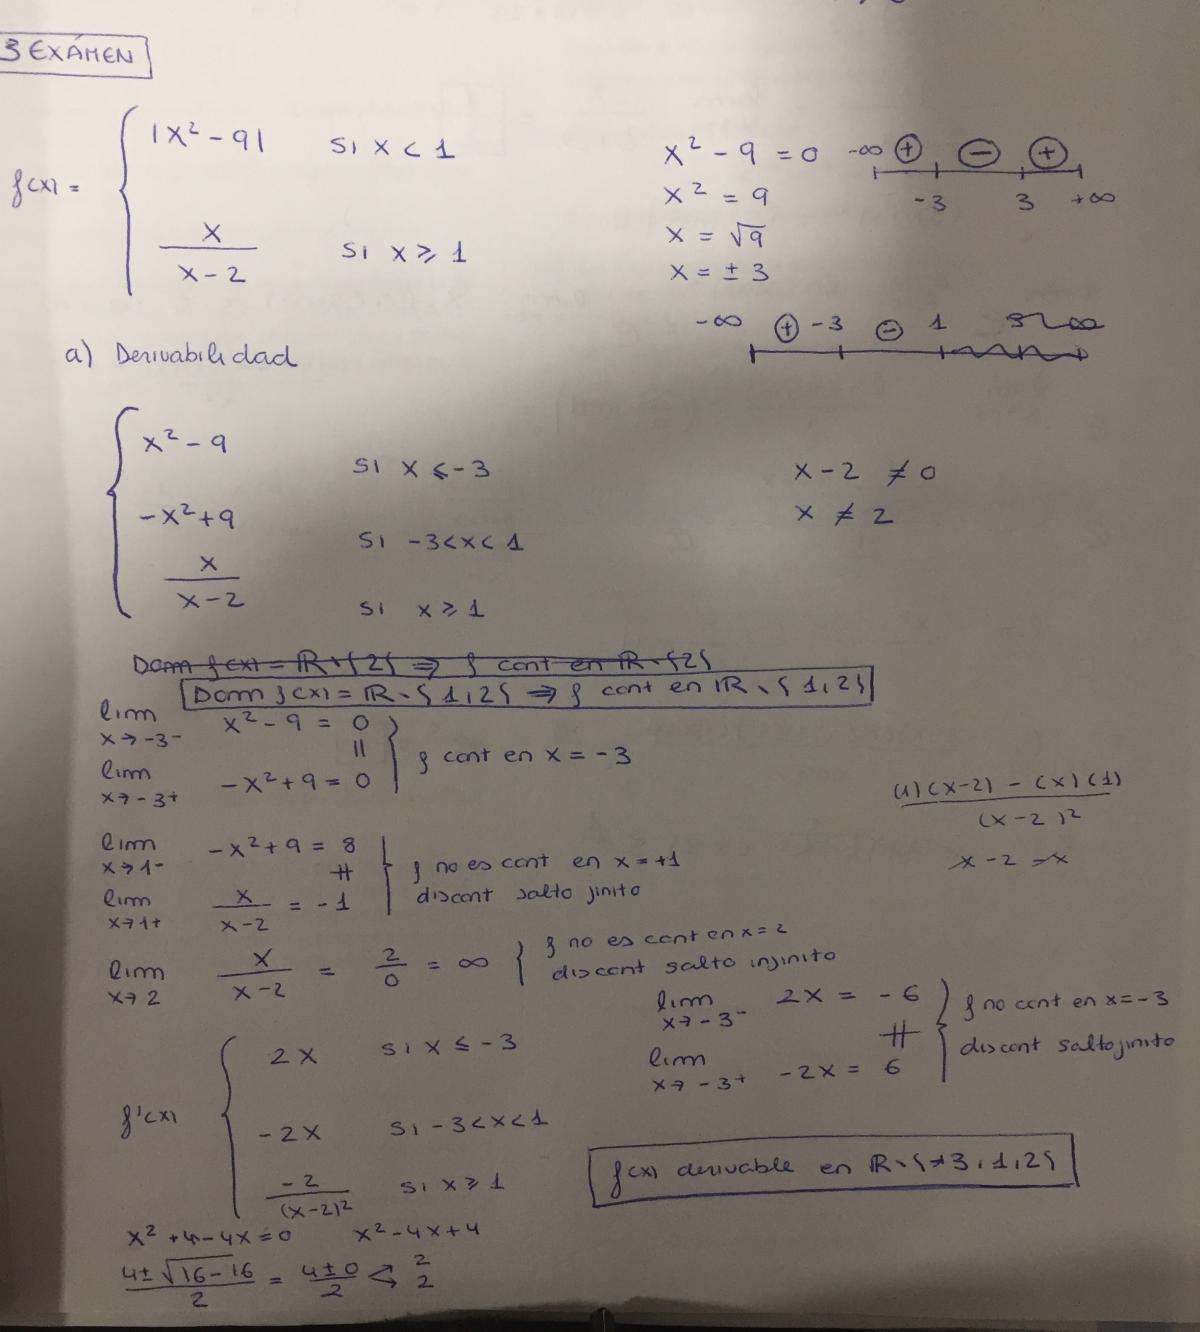 3 EXÁMEN
f(x) = { |x² - 9| si x < 1
x / (x - 2) si x ≥ 1
x² - 9 = 0
x² = 9
x = √9
x = ± 3
-∞ + - +
-3 3 +∞
-∞ + -3 - 1
a) Derivabilidad
x² - 9 si x ≤ -3
-x² + 9 si -3 < x < 1
x / (x - 2) si x ≥ 1
x - 2 ≠ 0
x ≠ 2
Dom f(x) = ℝ \ {2} ⇒ f cont en ℝ \ {2}
Dom f(x) = ℝ \ {1, 2} ⇒ f cont en ℝ \ {1, 2}
lim x→-3⁻ x² - 9 = 0
=
lim x→-3⁺ -x² + 9 = 0
} f cont en x = -3
lim x→1⁻ -x² + 9 = 8
≠
lim x→1⁺ x / (x - 2) = -1
} f no es cont en x = +1
discont salto finito
lim x→2 x / (x - 2) = 2/0 = ∞
} f no es cont en x = 2
discont salto infinito
(1)(x-2) - (x)(1) / (x - 2)²
x - 2 - x
f'(x) { 2x si x ≤ -3
-2x si -3 < x < 1
-2 / (x-2)² si x ≥ 1
lim x→-3⁻ 2x = -6
≠
lim x→-3⁺ -2x = 6
} f no cont en x = -3
discont salto finito
f(x) derivable en ℝ \ {-3, 1, 2}
x² + 4 - 4x = 0 x² - 4x + 4
4 ± √16 - 16 / 2 = 4 ± 0 / 2 < 2
2